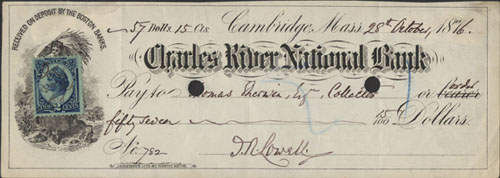 RECEIVED ON DEPOSIT BY THE BOSTON BANKS.
57 Dolls 15 Cts Cambridge, Mass 28th October, 1876.
Charles River National Bank
Pay to Thomas Esqr, Collector or order bearer
fifty seven 15/100 Dollars.
No. 782 J. R. Lowell